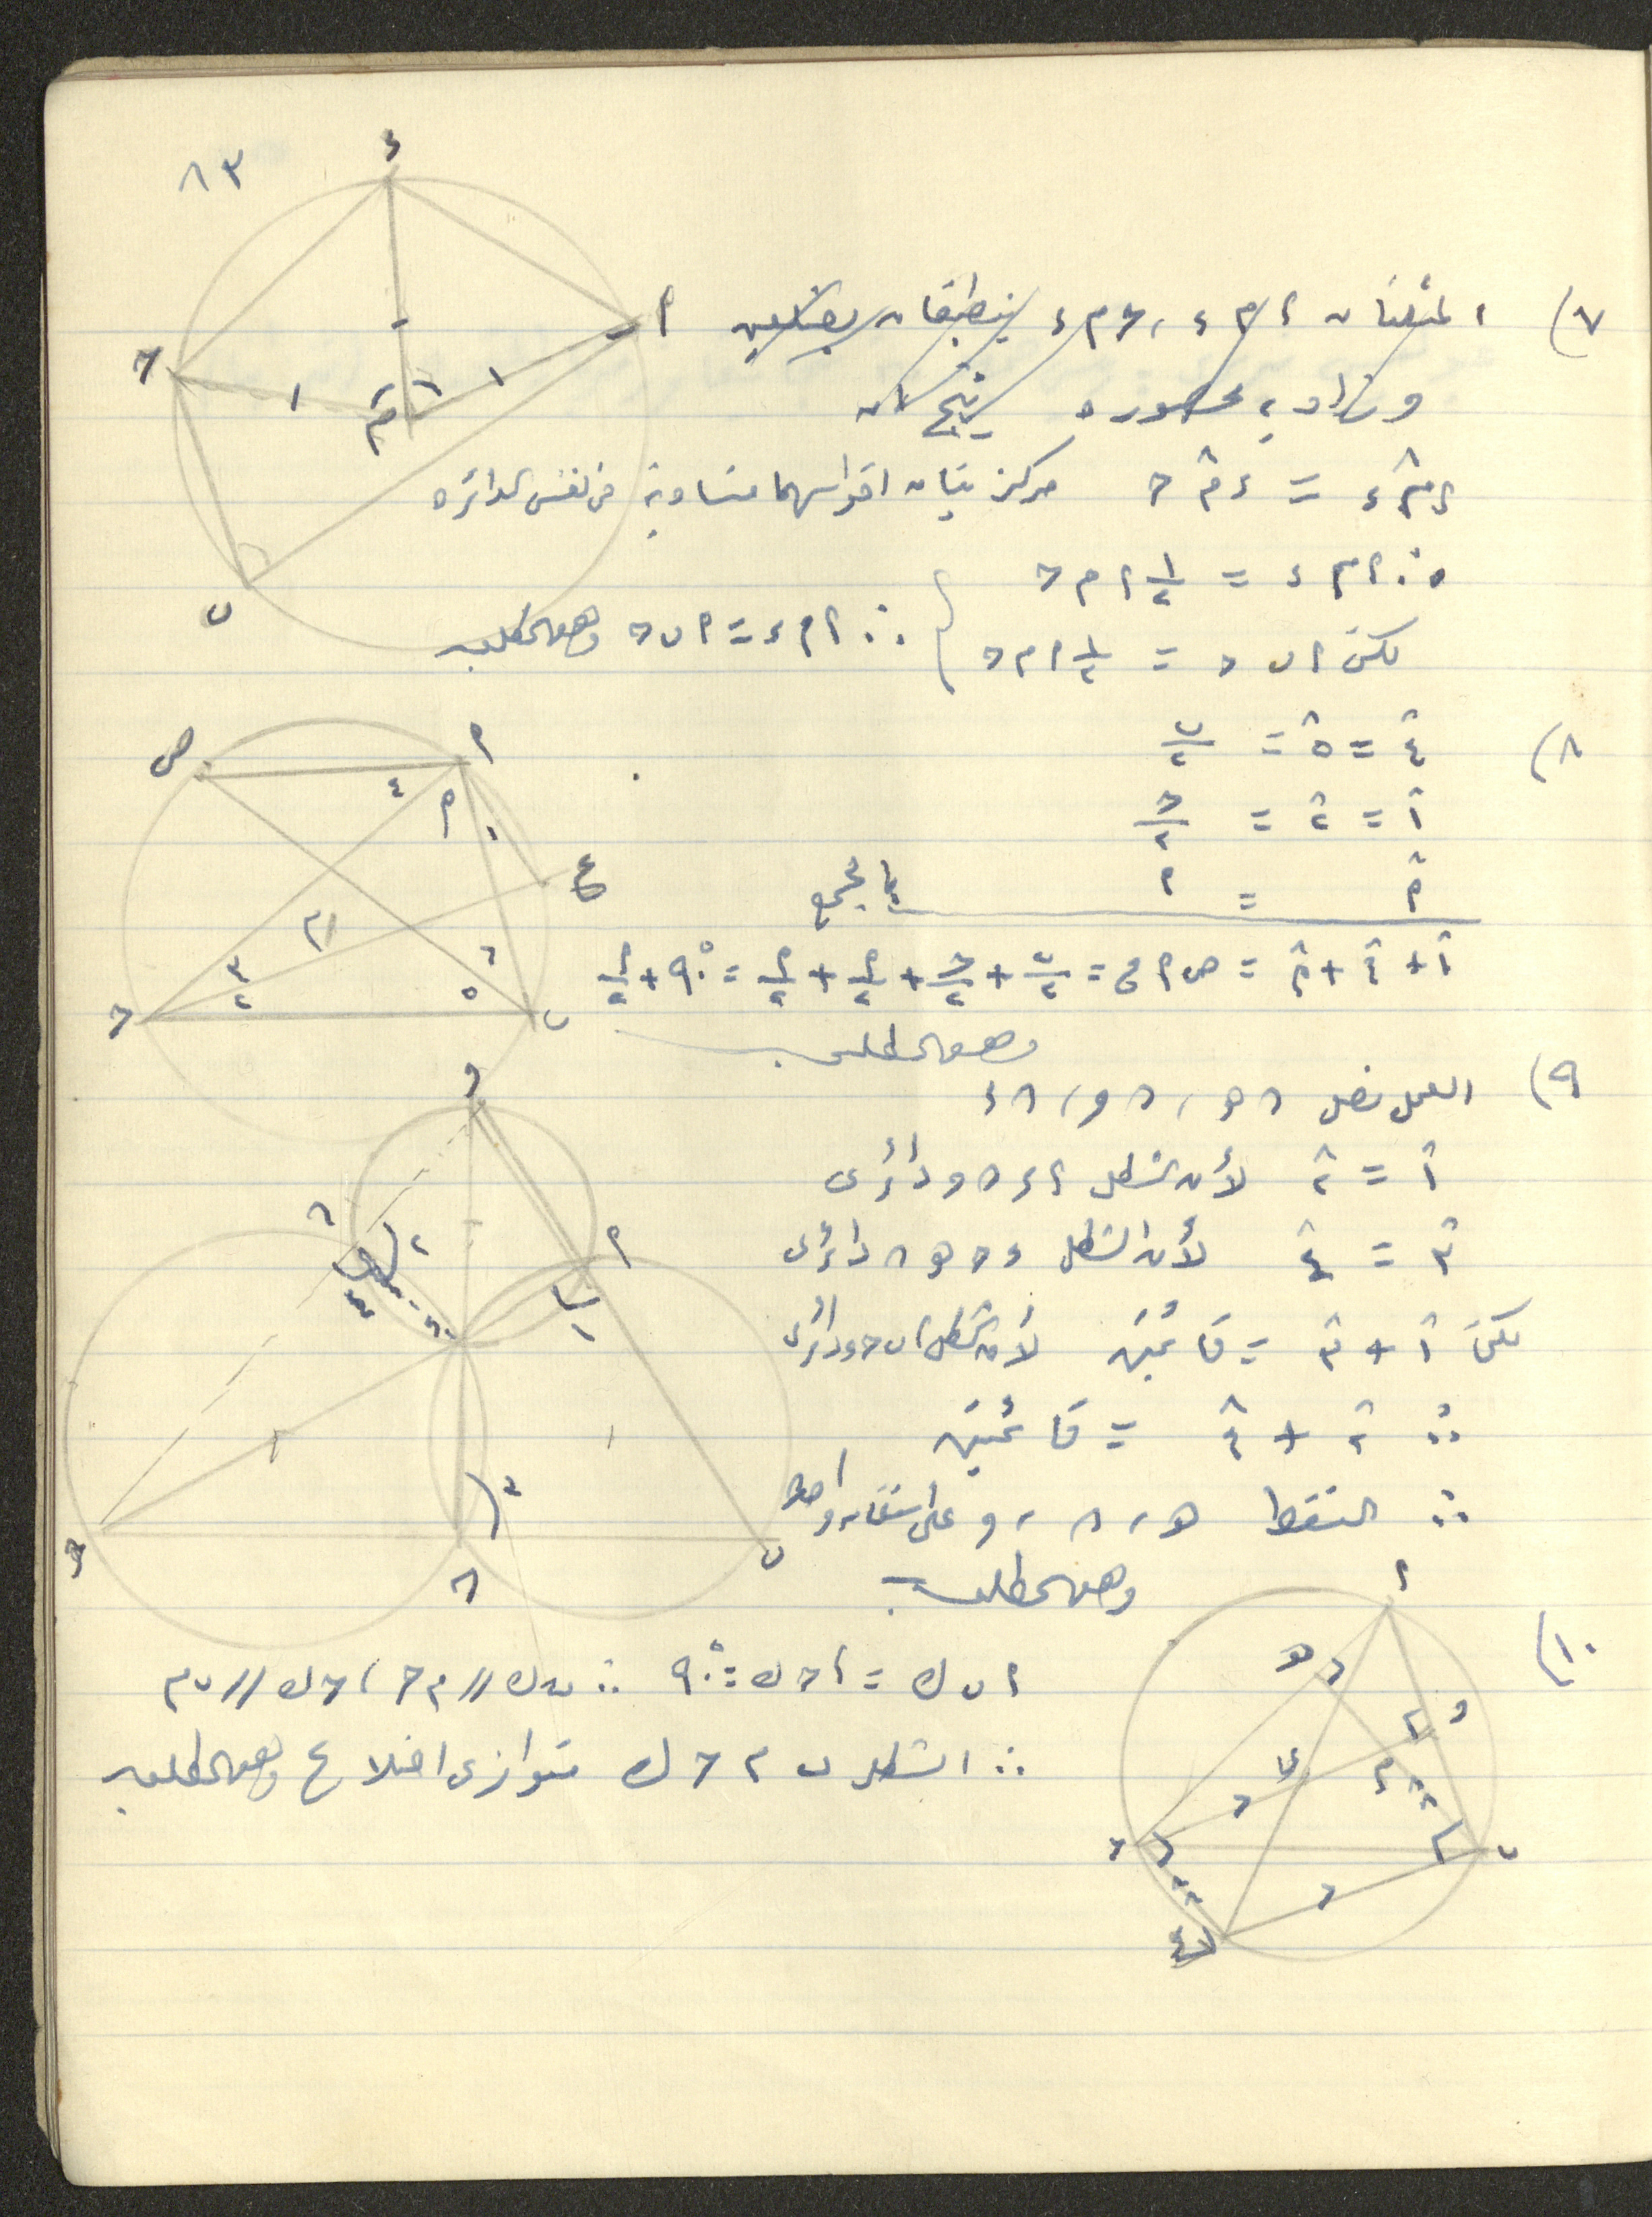 ٨٣
٧) المثلثان ا م ء ، ح م ء ينطبقان بضلعين
وزاوية محصورة ينتج ان
ا م̂ ء = ء م̂ ح مركزيتان اقواسهما متساوية فى نفس الدائره
∴ ا م ء = ١/٢ ا م ح
لكن ا ب ح = ١/٢ ا م ح } ∴ ا م ء = ا ب ح وهو المطلوب
٨) ٤̂ = ٥̂ = ب/٢
١̂ = ٢̂ = ح/٢
ا̂ = ا بالجمع
١̂ + ٤̂ + ا̂ = ص ا ع = ب/٢ + ح/٢ + ا/٢ + ا/٢ = ٩٠° + ا/٢
وهو المطلوب
٩) العمل نصل ٨ هـ ، ٨ و ، ٨ ء
١̂ = ٢̂ لأن الشكل ا ء ٨ و دائرى
٣̂ = ٤̂ لأن الشكل ء ح هـ ٨ دائرى
لكن ١̂ + ٣̂ = قائمتين لأن الشكل ا ب ح ء دائرى
∴ ٢̂ + ٤̂ = قائمتين
∴ النقط هـ ، ٨ ، و على استقامة واحدة
وهو المطلوب
١٠) ا ب ك = ا ح ك = ٩٠° ∴ ب ك // م ح ، ح ك // ب م
∴ الشكل ب م ح ك متوازى اضلاع وهو المطلوب